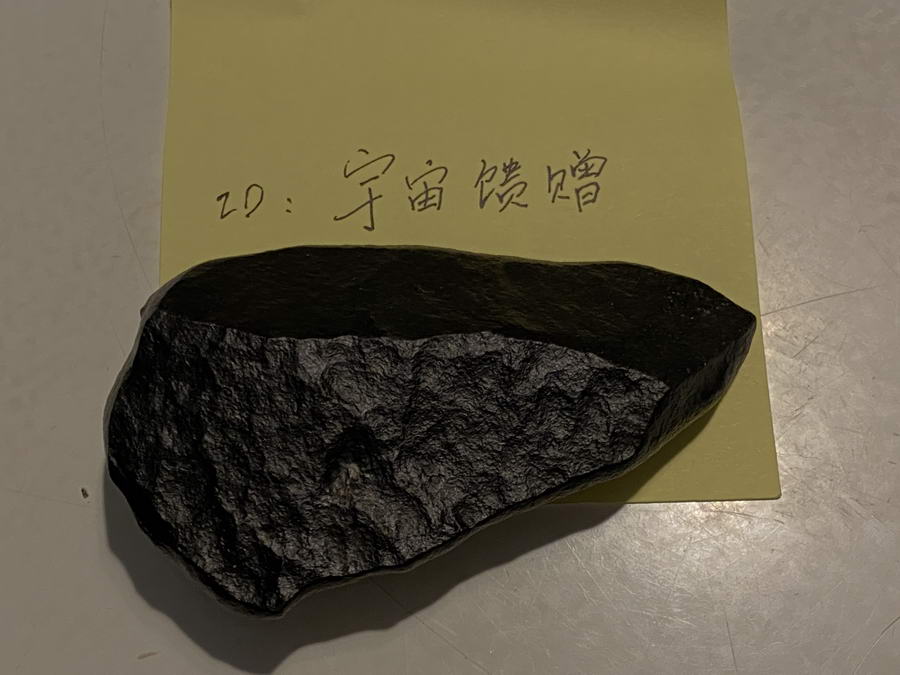 ID：宇宙馈赠